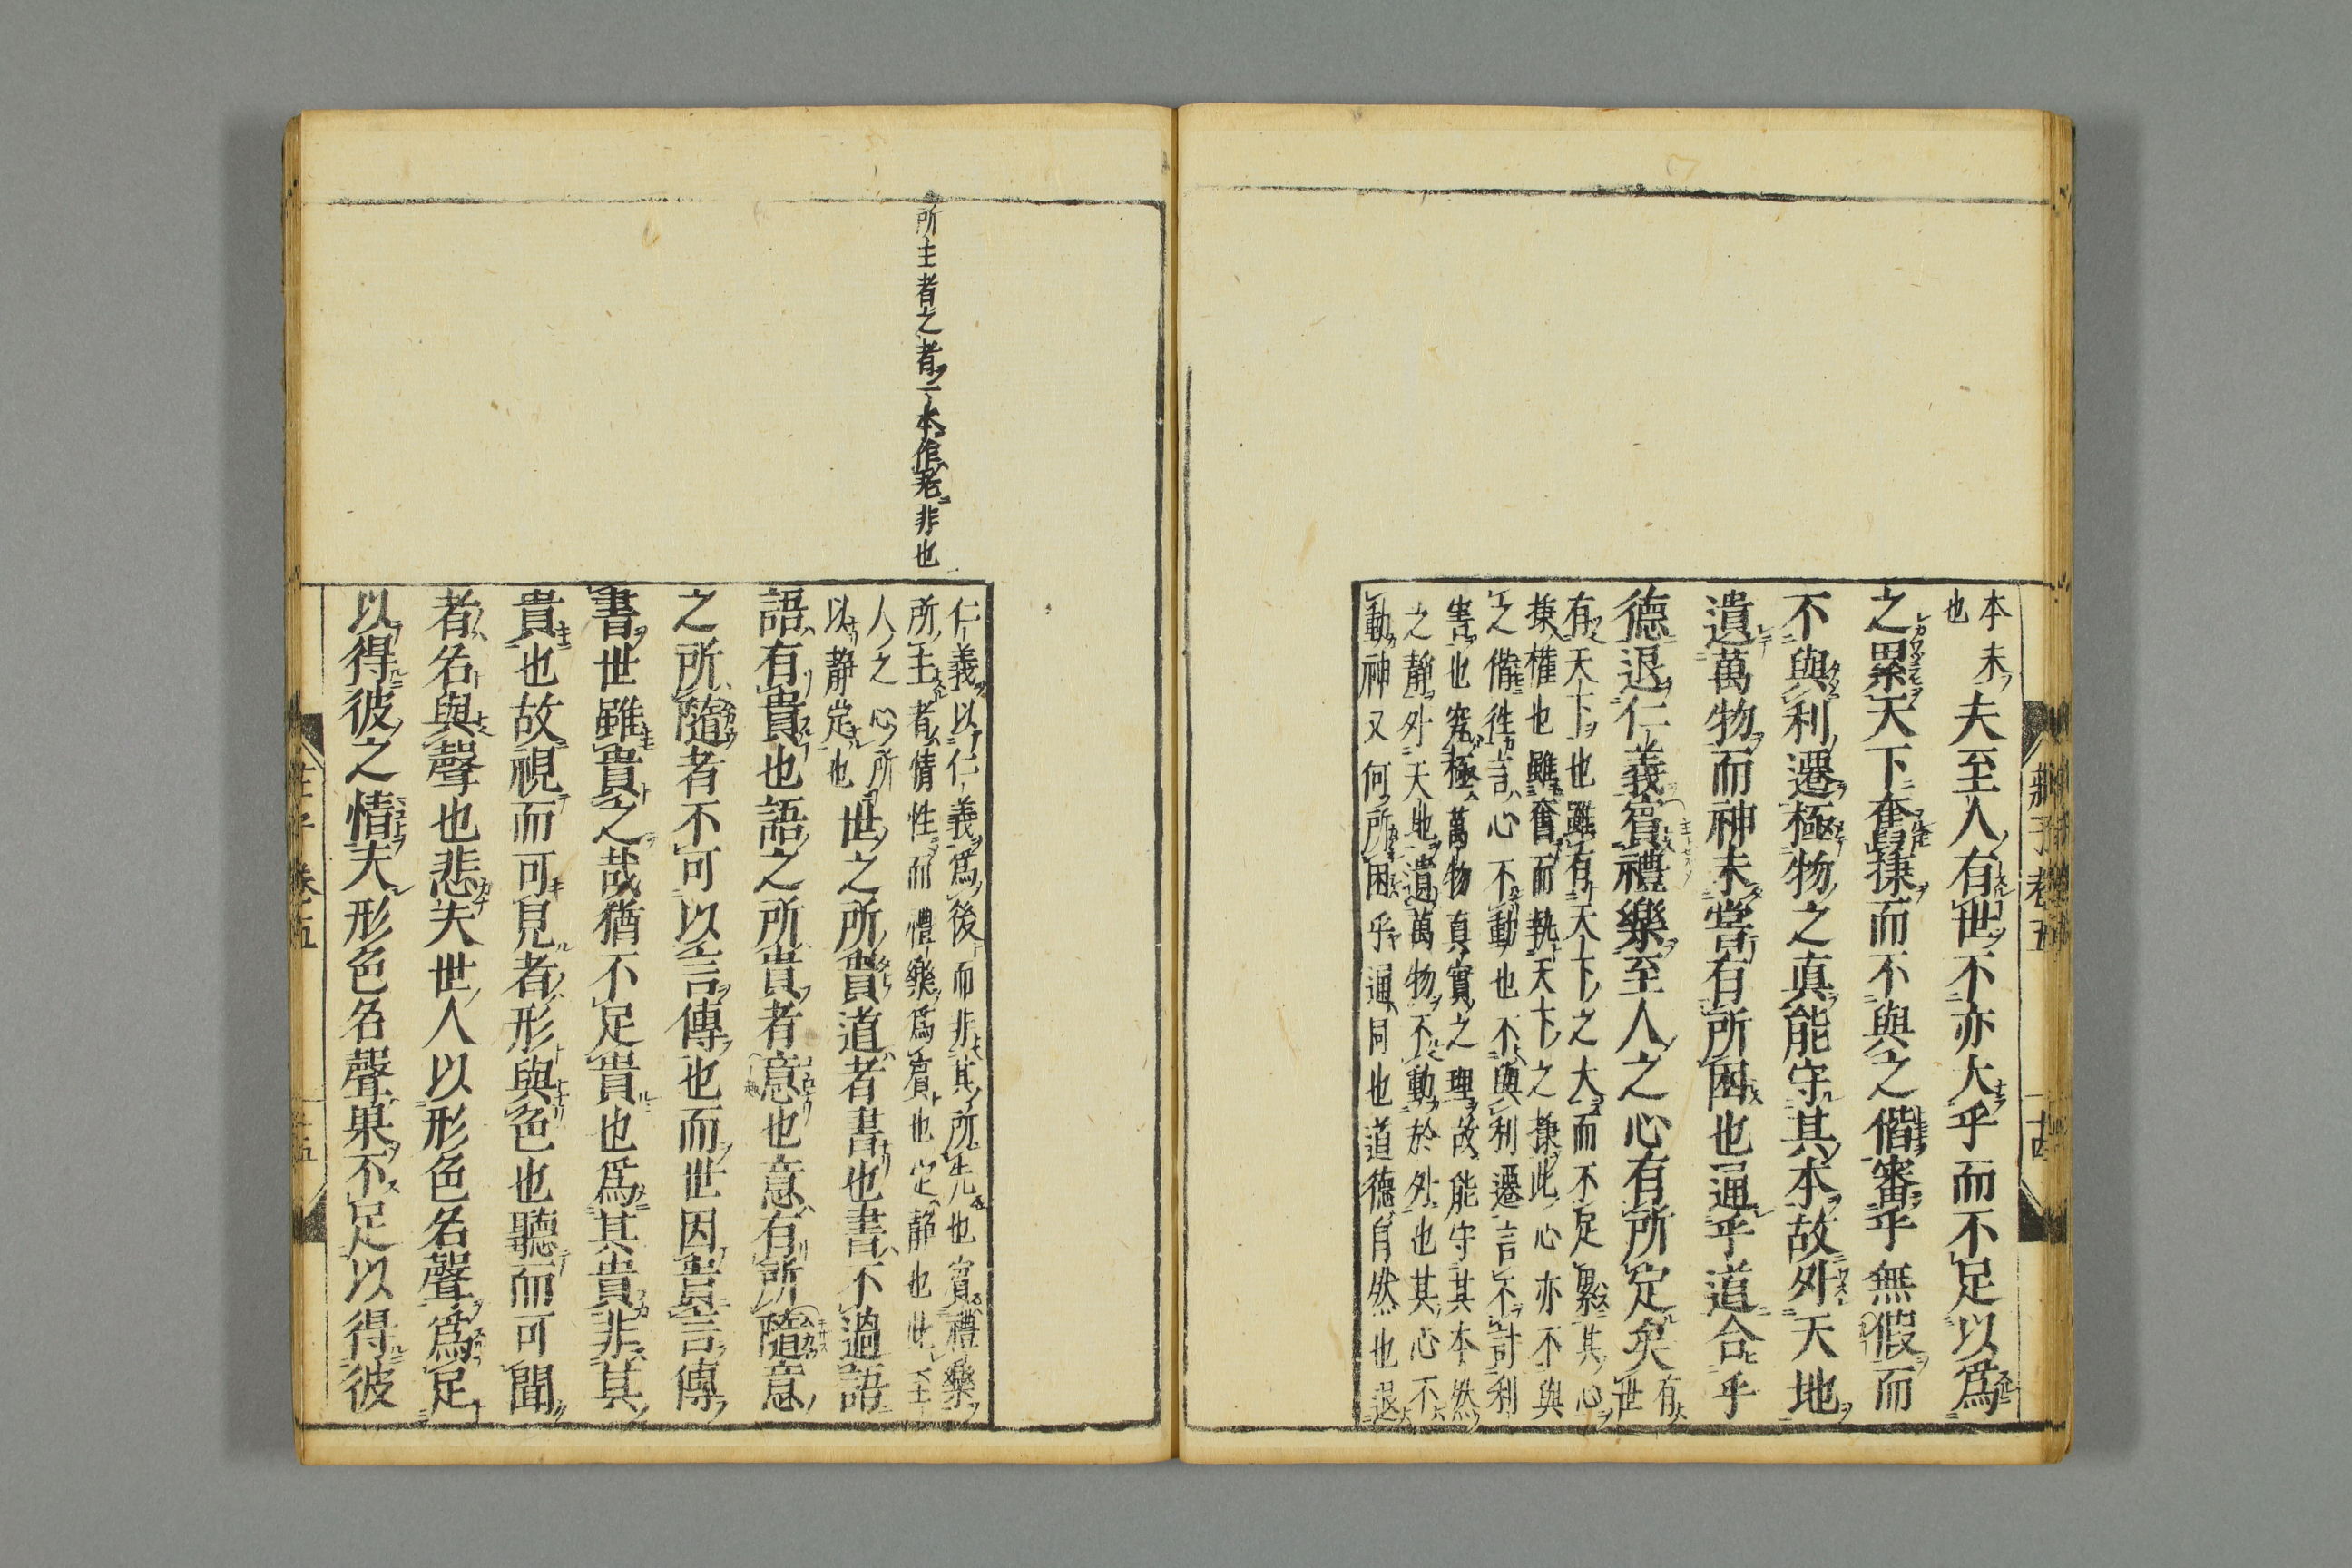 莊子卷五
十四
本末
也
夫至人有世不亦大乎而不足以爲
之累天下奮棅而不與之偕審乎無假而
不與利遷極物之真能守其本故外天地
遺萬物而神未嘗有所困也通乎道合乎
德退仁義賓禮樂至人之心有所定矣
有世
有天下也雖有天下之大而不足累其心
棅權也雖奮而執天下之棅此心亦不與
之偕徃言心不動也不與利遷言不計利
害也究極萬物真實之理故能守其本然
之靜外天地遺萬物不動於外也其心不
動神又何所困乎通同也道德自然也退
仁義以仁義爲後而非其所先也賓禮樂
所主者情性而禮樂爲賓也定靜也此至
人之心所
以靜定也
世之所貴道者書也書不過語
語有貴也語之所貴者意也意有所隨意
之所隨者不可以言傳也而世因貴言傳
書世雖貴之哉猶不足貴也爲其貴非其
貴也故視而可見者形與色也聽而可聞
者名與聲也悲夫世人以形色名聲爲足
以得彼之情夫形色名聲果不足以得彼
所主者之者一本作老非也
莊子 卷五